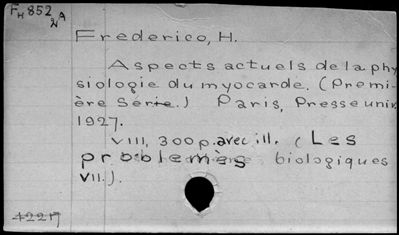 FH 852
2A
Frederico, H.
Aspects actuels de la phy
siologie du myocarde. (Premi-
ère Série.) Paris, Presse univ.
1927.
VIII, 300 p. avec ill. (Les
problemès biologiques
VII.).
42217